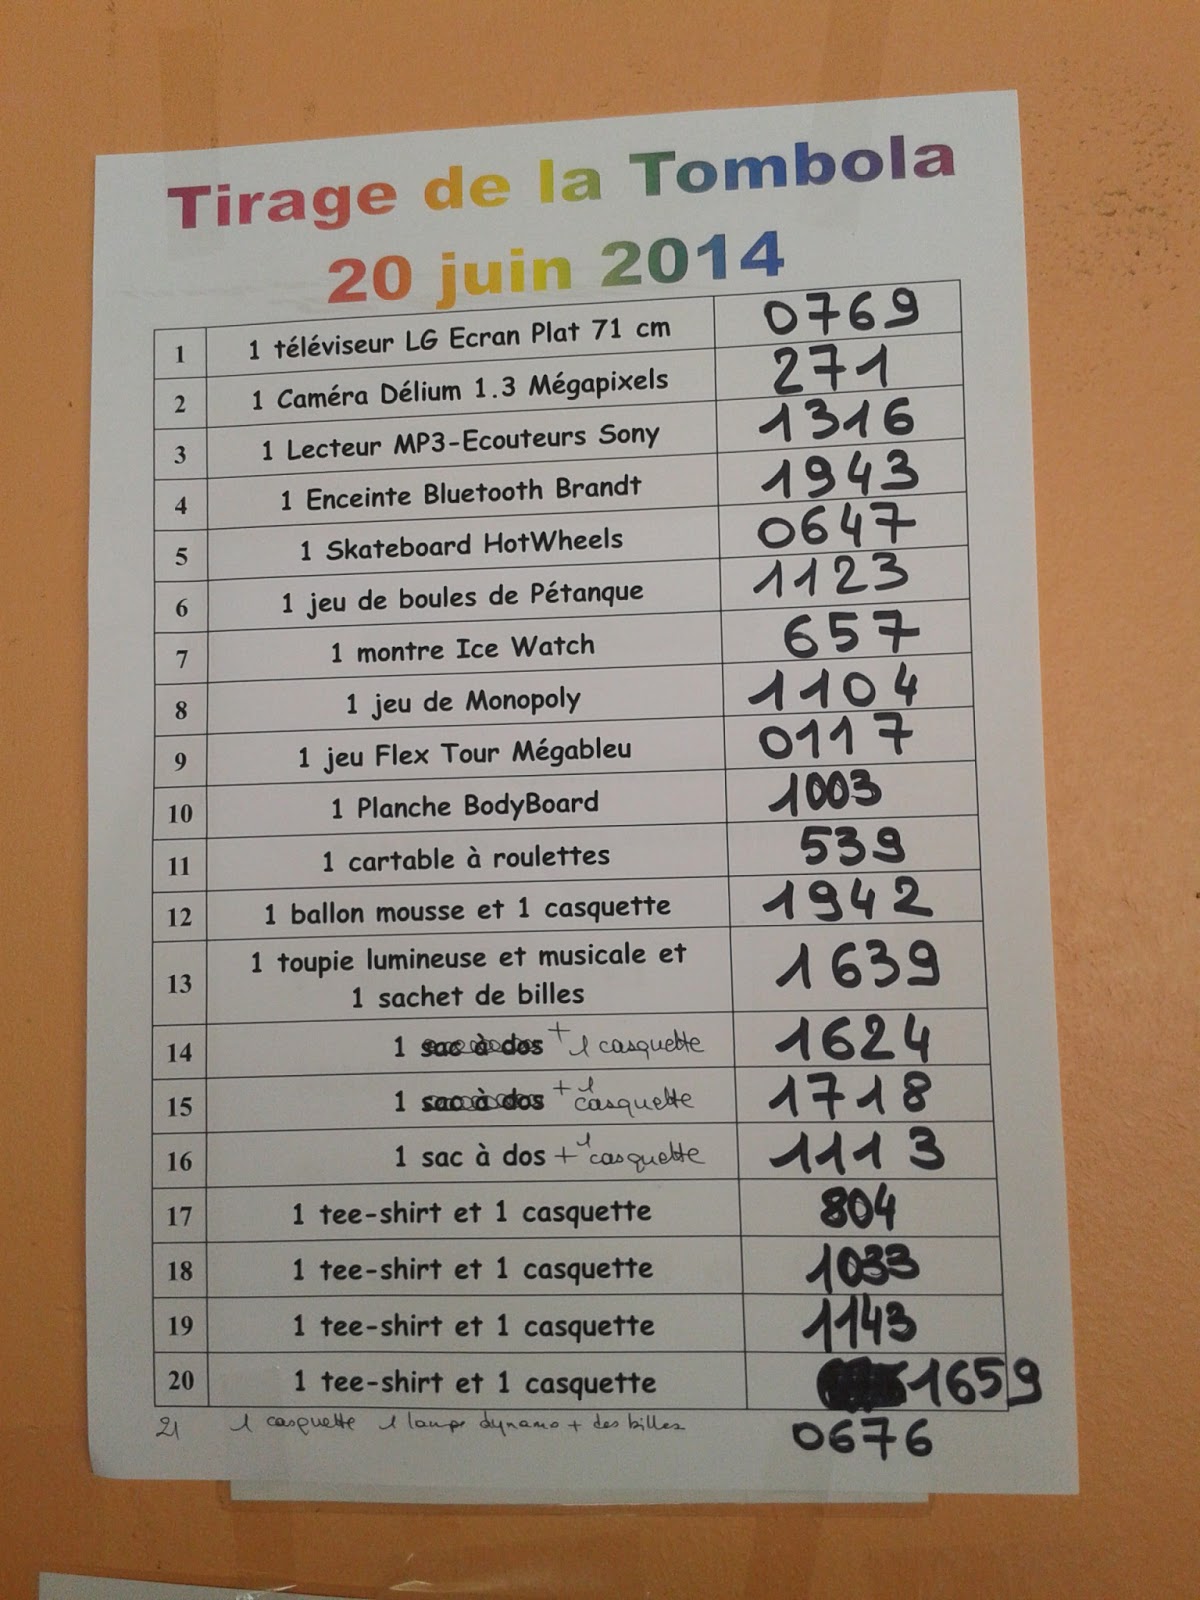 Tirage de la Tombola
20 juin 2014
1 1 téléviseur LG Ecran Plat 71 cm 0769
2 1 Caméra Délium 1.3 Mégapixels 271
3 1 Lecteur MP3-Ecouteurs Sony 1316
4 1 Enceinte Bluetooth Brandt 1943
5 1 Skateboard HotWheels 0647
6 1 jeu de boules de Pétanque 1123
7 1 montre Ice Watch 657
8 1 jeu de Monopoly 1104
9 1 jeu Flex Tour Mégableu 0117
10 1 Planche BodyBoard 1003
11 1 cartable à roulettes 539
12 1 ballon mousse et 1 casquette 1942
13 1 toupie lumineuse et musicale et
1 sachet de billes 1639
14 1 sac à dos + 1 casquette 1624
15 1 sac à dos + 1 casquette 1718
16 1 sac à dos + 1 casquette 1113
17 1 tee-shirt et 1 casquette 804
18 1 tee-shirt et 1 casquette 1033
19 1 tee-shirt et 1 casquette 1143
20 1 tee-shirt et 1 casquette 1659
21 1 casquette 1 lampe dynamo + des billes 0676